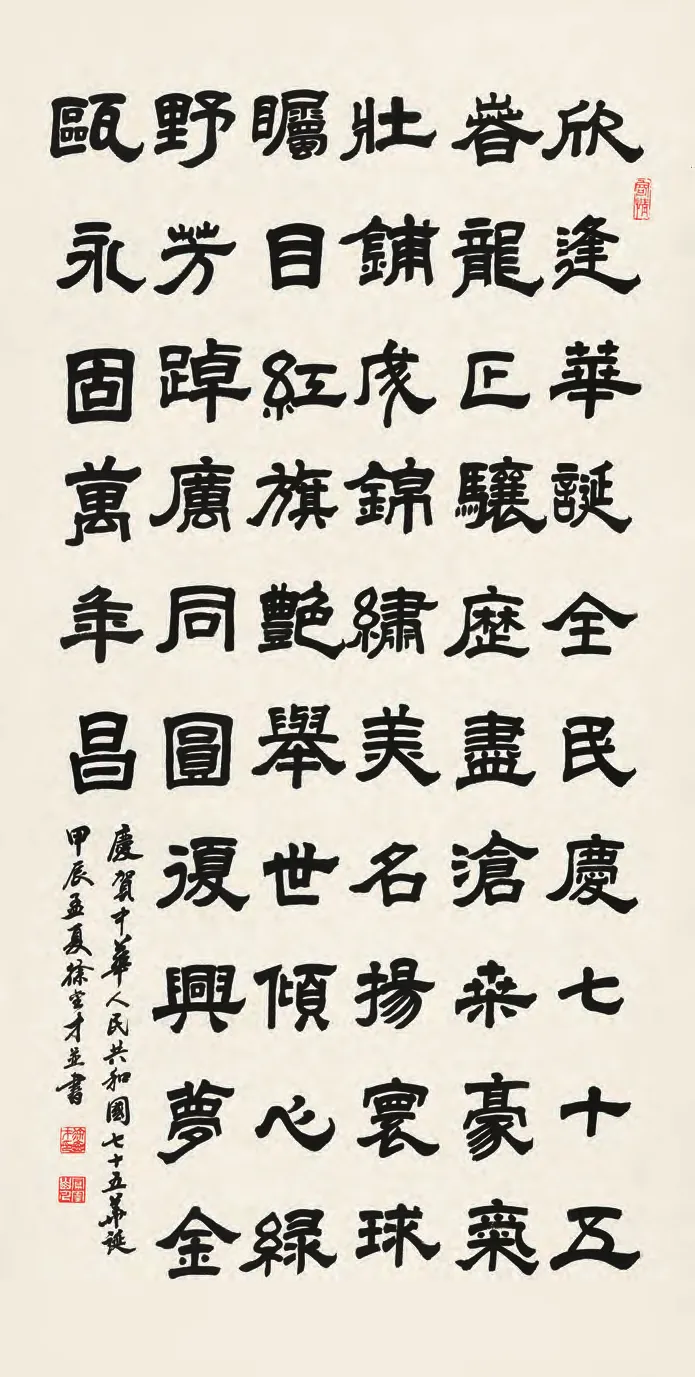 欣逢華誕全民慶七十五
萅龍正驤歷盡滄桒豪氣
壯鋪成錦繡美名揚寰球
矚目紅旗艷舉世傾心緑
野芳踔厲同圓復興夢金
甌永固萬年昌
慶賀中華人民共和國七十五華誕
甲辰孟夏徐才並書